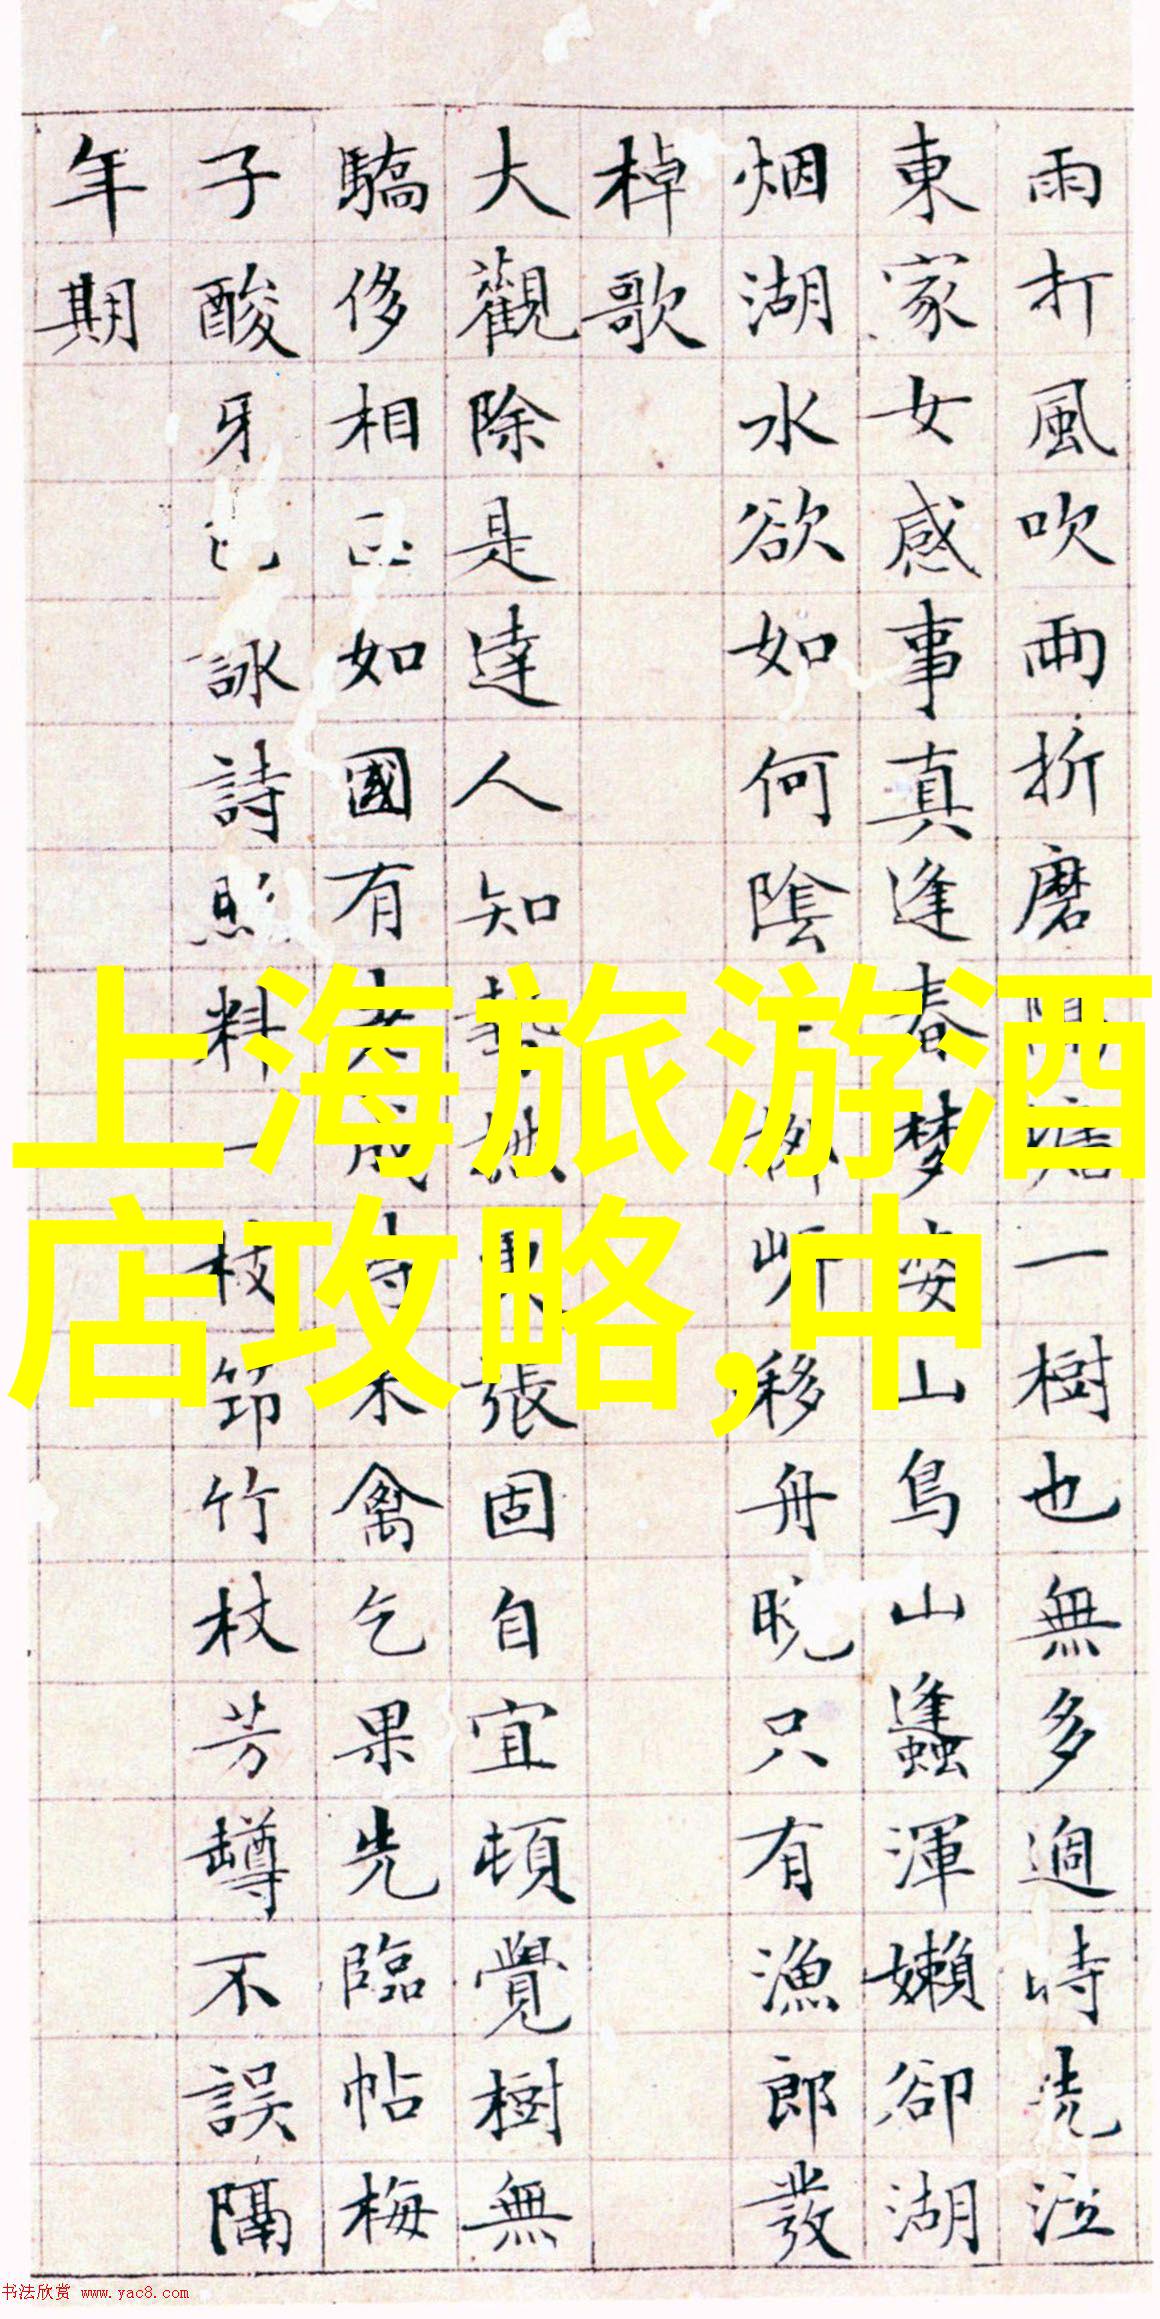 雨打風吹雨折磨一樹也無多過時泣
東家女感事真逢春夢山鳥山蠭渾嬾卻湖
烟湖水欲如何陰移舟晚只有漁郎發
棹歌
大觀除是達人知張固自宜頓覺樹無
驕侈相如國有禽乞果先臨帖梅
子酸牙詠詩照料一枝筇竹杖芳罇不誤隔
年期
上海旅游酒
店攻略,中
书法欣赏 www.yac8.com